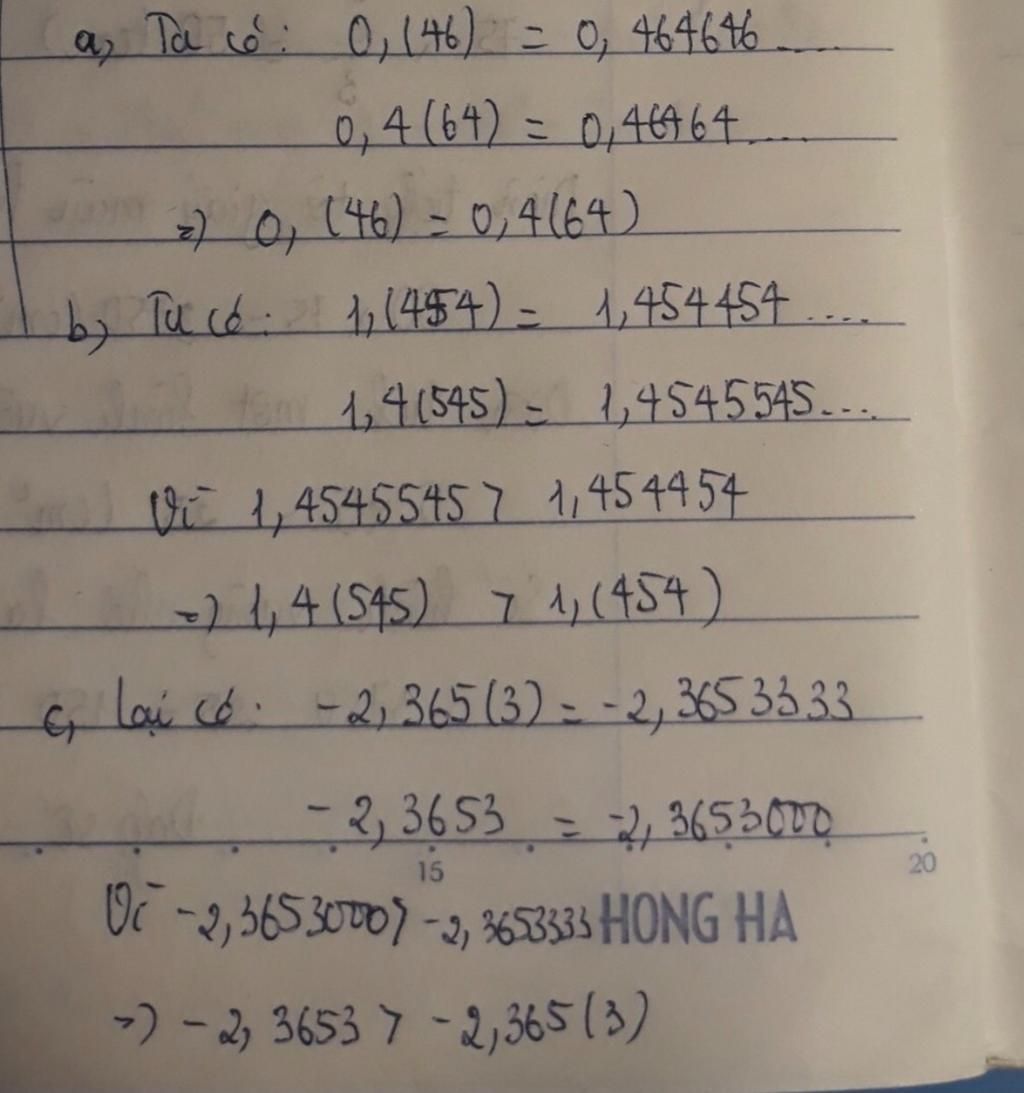 a, Ta có: 0,(46) = 0,464646....
0,4(64) = 0,46464....
=> 0,(46) = 0,4(64)
b, Ta có: 1,(454) = 1,454454....
1,4(545) = 1,4545545...
Vì 1,4545545 > 1,454454
=> 1,4(545) > 1,(454)
c, lại có: -2,365(3) = -2,3653333
-2,3653 = -2,3653000
15 20
Vì -2,3653000 > -2,3653333 HONG HA
=> -2,3653 > -2,365(3)